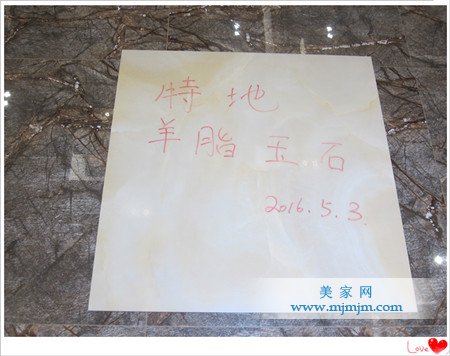 特地
羊脂玉石
2016.5.3.
美家网
www.mjmjm.com
Love